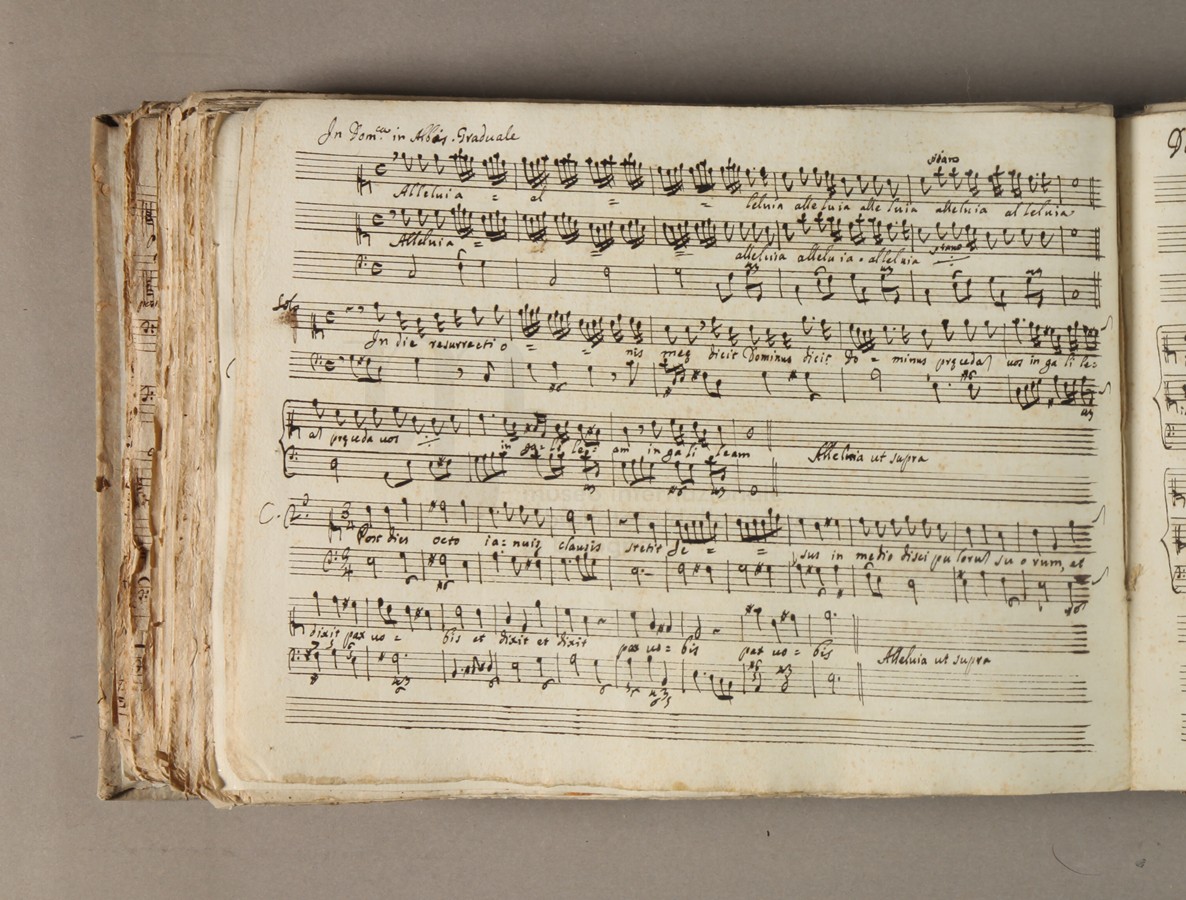 In Dom.ca in Albis. Graduale
piano
Alleluia = al = = leluia alleluia alleluia alleluia alleluia
Alleluia = alleluia alleluia. alleluia
piano
Solo
In die resurrectio = = nis meę dicit Dominus dicit Do = minus pręcedā vos in gali le=
al pręceda vos in ga = li le = am in gali leam
Alleluia ut supra
C. 2.
Post dies octo ia = nuis clausis stetit Je = = sus in medio discipulorū suorum, et
dixit pax vo = bis et dixit et dixit pax vo = bis pax vo = bis
Alleluia ut supra
museo internazionale